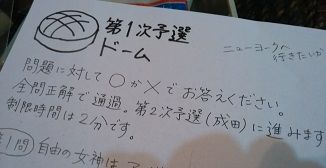 第1次予選
ドーム
ニューヨークへ
行きたいか
問題に対して○か×でお答えください。
全問正解で通過。第2次予選(成田)に進みます
制限時間は2分です。
第1問)自由の女神は